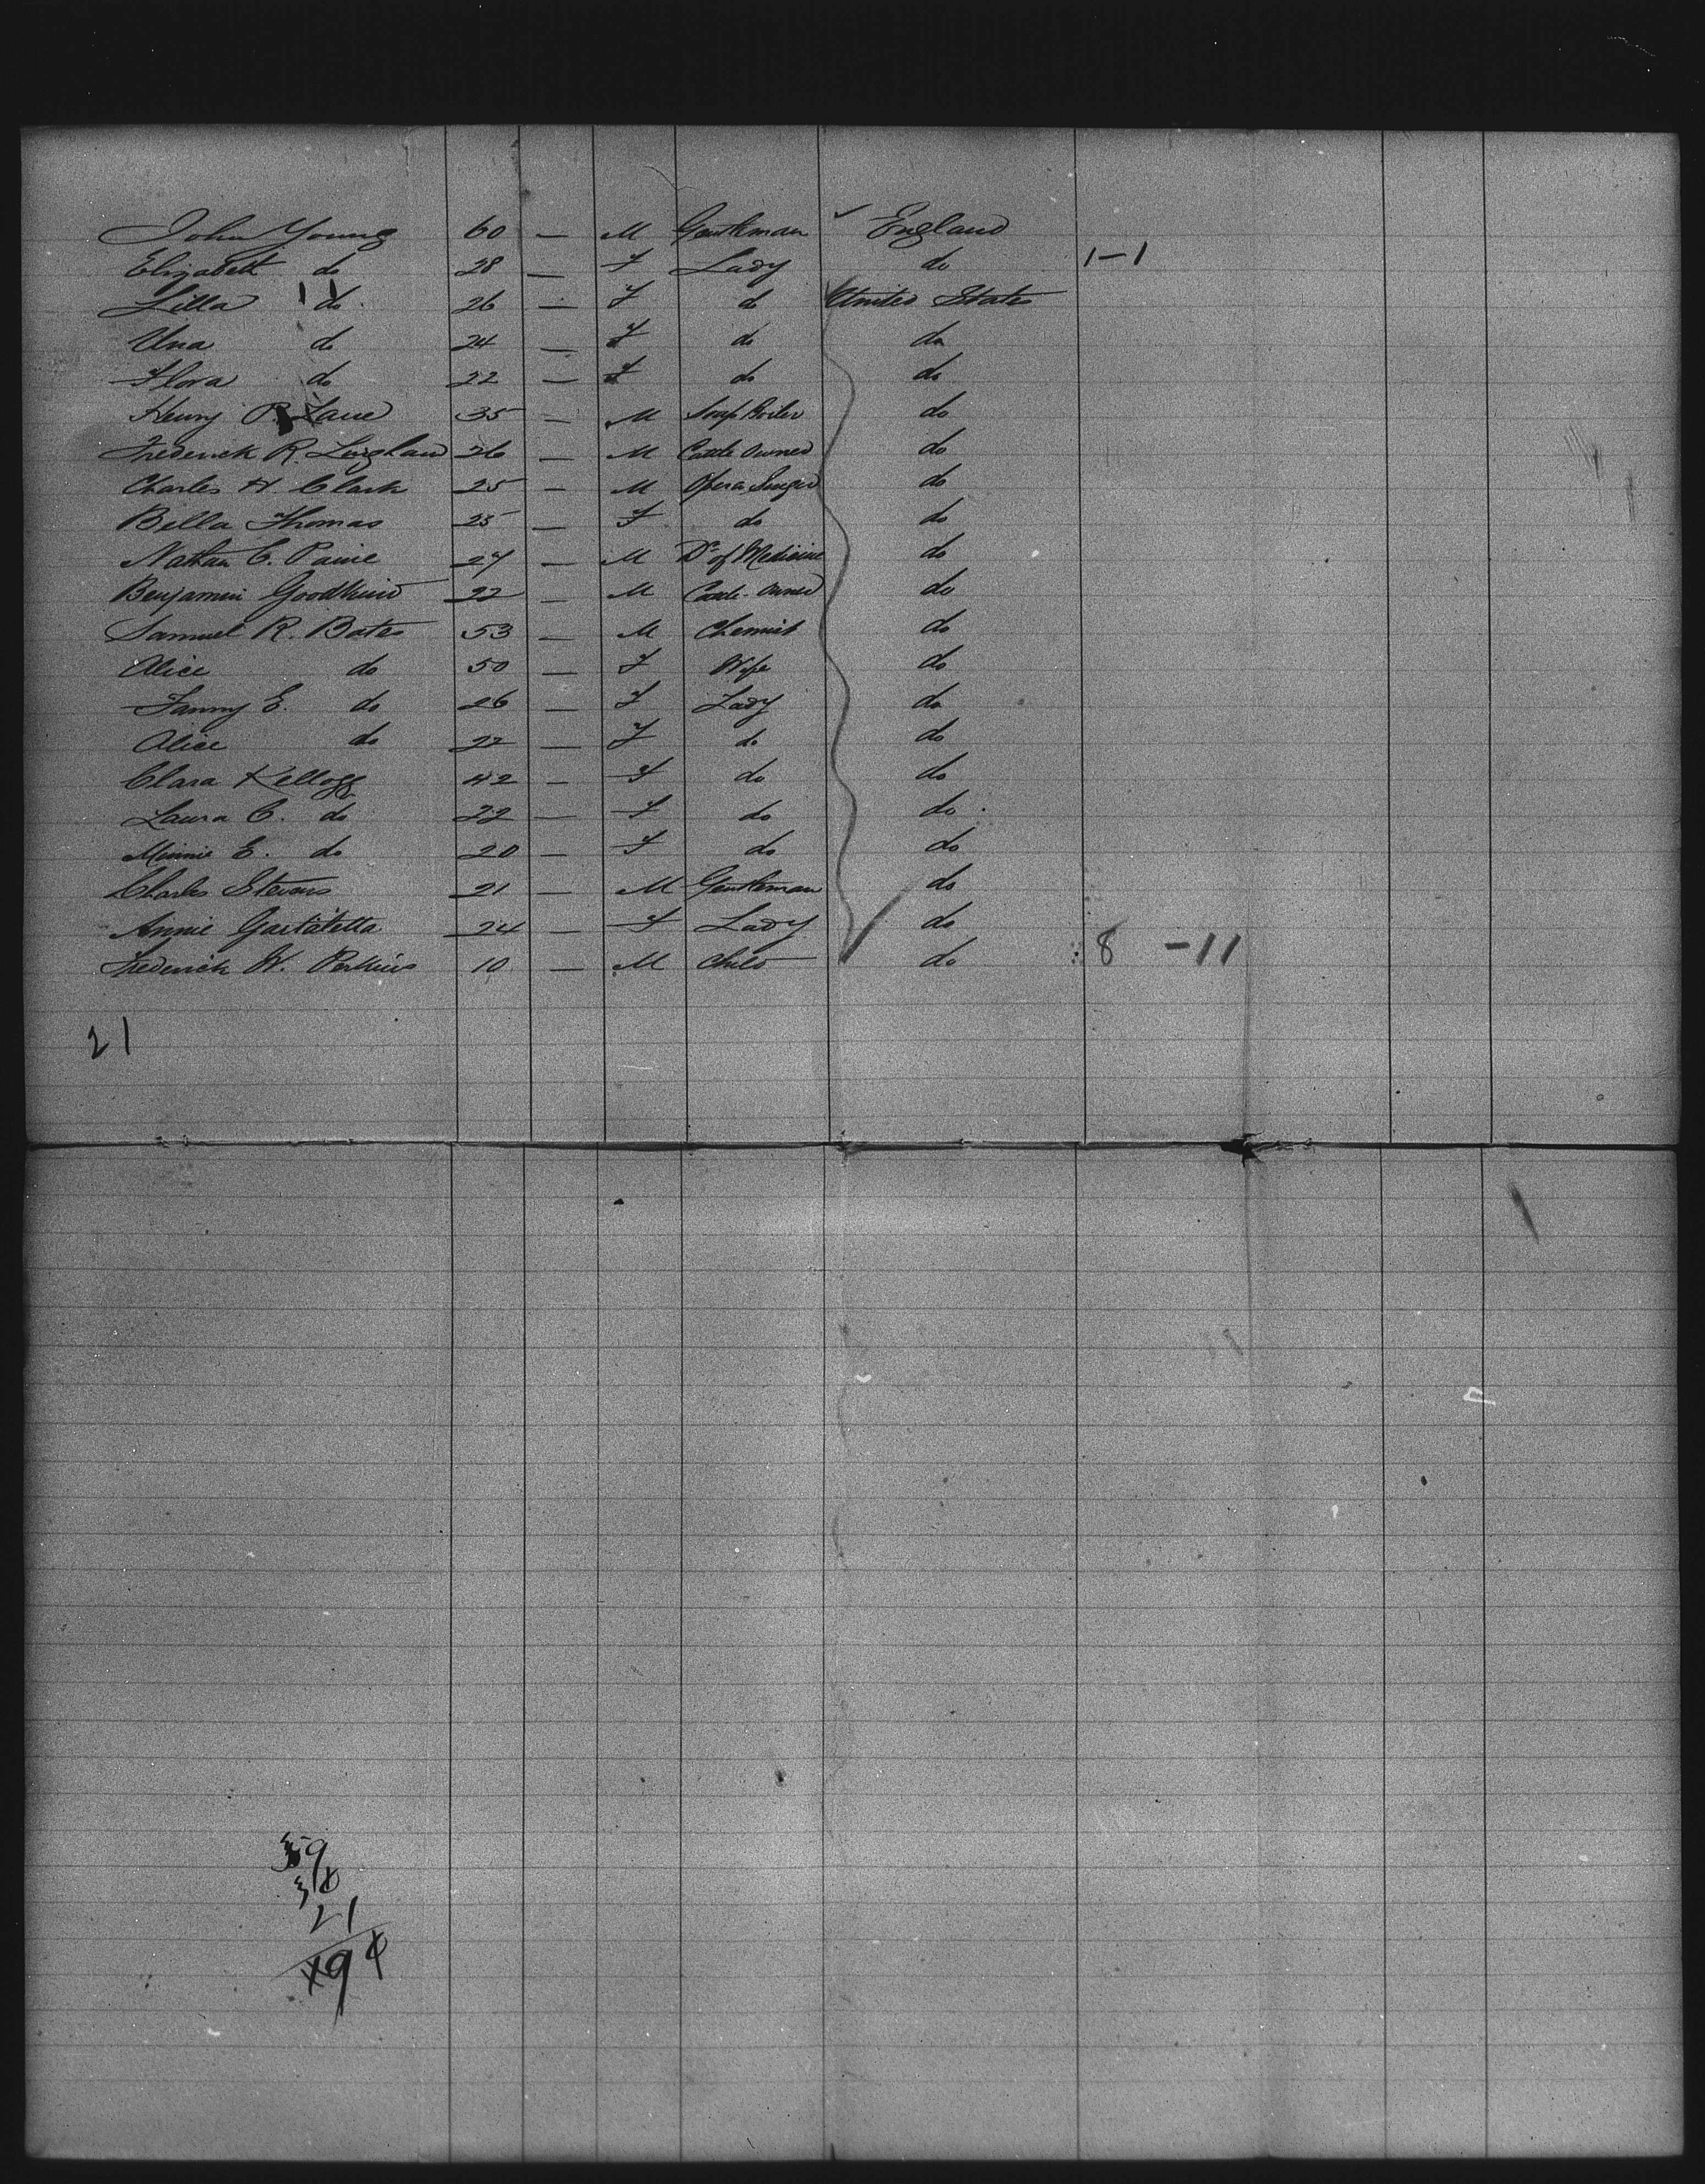 John Young 60 — M Gentleman England
Elizabeth do 28 — F Lady do 1-1
Lilla do 26 — F do United States
Una do 24 — F do do
Flora do 22 — F do do
Henry P. Lane 35 — M Soap Boiler do
Frederick R. 26 — M Cattle Owner do
Charles H. Clark 25 — M Opera Singer do
Bella Thomas 25 — F do do
Nathan C. Paine 27 — M Dr of Medicine do
Benjamin Goodkind 22 — M Cattle-Owner do
Samuel R. Bates 53 — M Chemist do
Alice do 50 — F Wife do
Fanny E. do 26 — F Lady do
Alice do 22 — F do do
Clara Kellogg 42 — F do do
Laura C. do 22 — F do do
Minnie E. do 20 — F do do
Charles Stevens 21 — M Gentleman do
Annie 24 — F Lady do
Frederick W. Perkins 10 — M Child do 8 -11
21
21